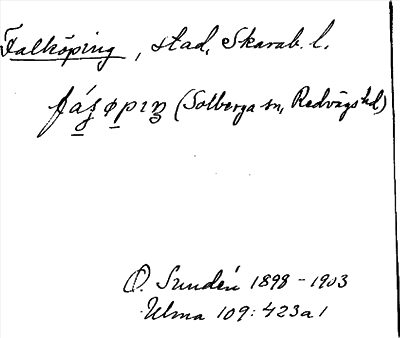 Falköping, stad, Skarab. l.
(Solberga sn, Redvägs hd)
O. Sundén 1898-1903
Ulma 109:423a1